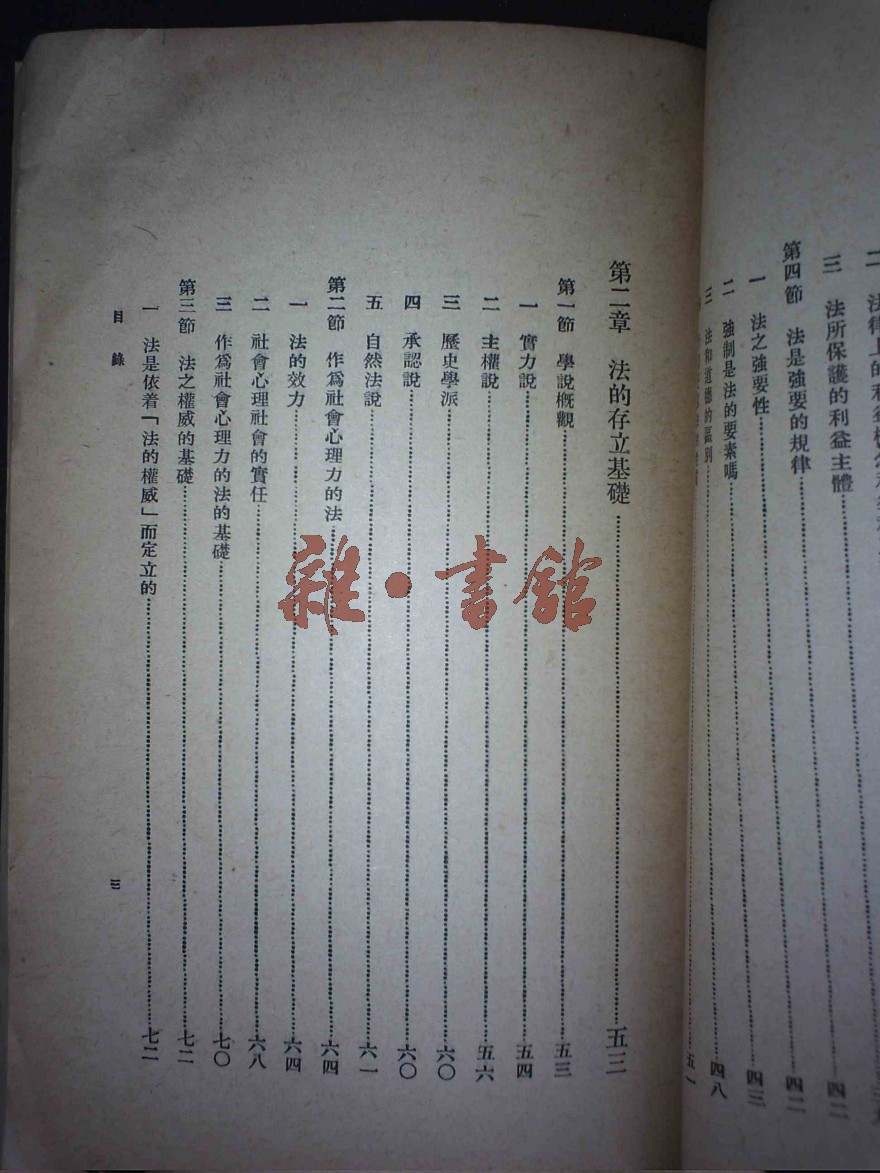 三 法所保護的利益主體 四二
第四節 法是強要的規律 四二
一 法之強要性 四三
二 強制是法的要素嗎 四八
三 法和道德的區別 五一
第二章 法的存立基礎 五三
第一節 學說概觀 五三
一 實力說 五四
二 主權說 五六
三 歷史學派 六〇
四 承認說 六〇
五 自然法說 六一
第二節 作爲社會心理力的法 六四
一 法的效力 六四
二 社會心理社會的實任 六八
三 作爲社會心理力的法的基礎 七〇
第三節 法之權威的基礎 七二
一 法是依着「法的權威」而定立的 七二
目錄 三
雜·書館